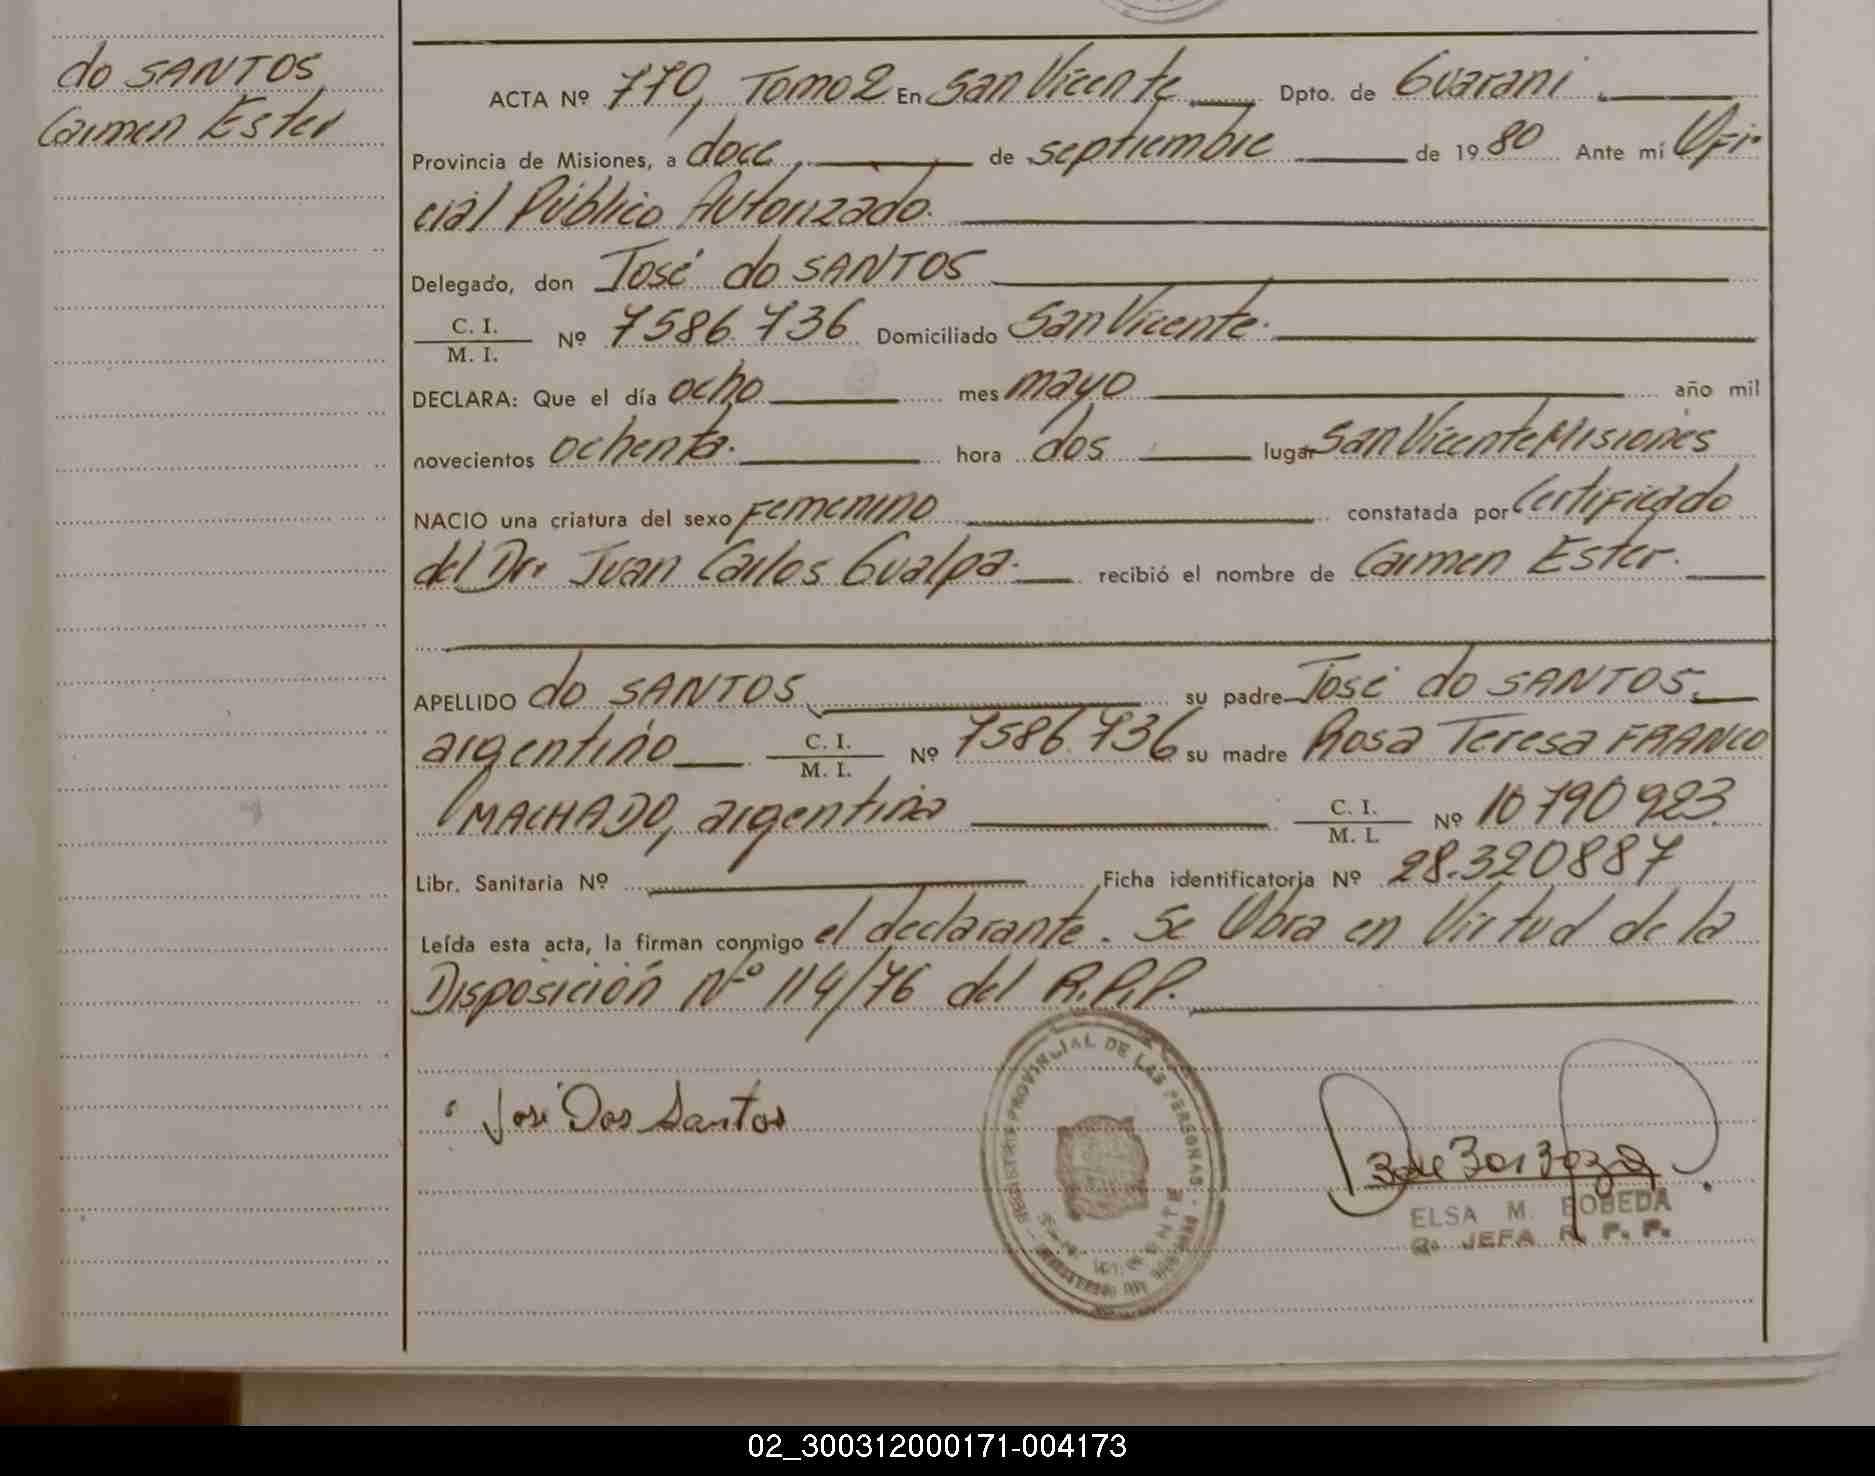 do SANTOS
Carmen Ester
ACTA Nº 770, Tomo 2 En San Vicente Dpto. de Guarani
Provincia de Misiones, a doce, de septiembre de 19 80 Ante mí Ofi-
cial Público Autorizado.
Delegado, don José do SANTOS
C. I.
M. I. Nº 7586.736 Domiciliado San Vicente.
DECLARA: Que el día ocho mes mayo año mil
novecientos ochenta. hora dos lugar San Vicente Misiones
NACIO una criatura del sexo Femenino constatada por Certificado
del Dr. Juan Carlos Gualpa. recibió el nombre de Carmen Ester.
APELLIDO do SANTOS, su padre José do SANTOS,
argentino C. I.
M. I. Nº 7586.736 su madre Rosa Teresa FRANCO
MACHADO, argentina C. I.
M. I. Nº 10790923.
Libr. Sanitaria Nº Ficha identificatoria Nº 28.320887
Leída esta acta, la firman conmigo el declarante. Se Obra en Virtud de la
Disposición Nº 114/76 del R.P.P.
José Dos Santos
REGISTRO PROVINCIAL DE LAS PERSONAS
ELSA M. BOBEDA
JEFA R. P. P.
02_300312000171-004173